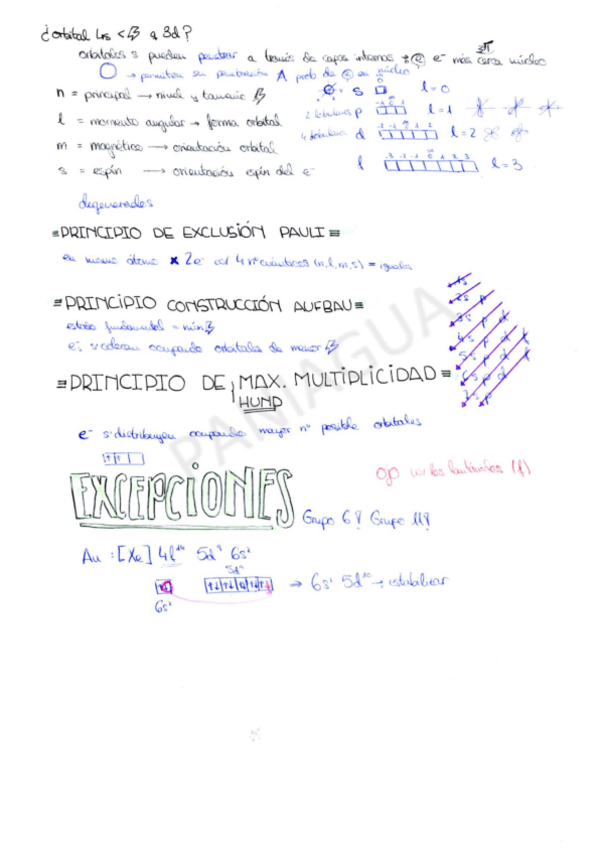 ¿orbital 4s < a 3d?
orbitales s pueden penetrar a través de capas internas e⁻ más cerca núcleo
→ permiten su penetración prob de e en núcleo
n = principal → nivel y tamaño
s l=0
l = momento angular → forma orbital
2 lóbulos p l=1
4 lóbulos d l=2
m = magnético → orientación orbital
l=3
s = espín → orientación espín del e⁻
degenerados
≡PRINCIPIO DE EXCLUSIÓN PAULI≡
en mismo átomo x 2e⁻ 4 nº cuánticos (n, l, m, s) = iguales
≡PRINCIPIO CONSTRUCCIÓN AUFBAU≡
estado fundamental = mín
e⁻ s'ordenan ocupando orbitales de menor
1s
2s p
3s p d
4s p d f
5s p d f
6s p d
7s p
≡PRINCIPIO DE MAX. MULTIPLICIDAD≡
HUND
e⁻ s'distribuyen ocupando mayor nº posible orbitales
EXCEPCIONES
ojo con los lantánidos (f)
Grupo 6 y Grupo 11
Au : [Xe] 4f¹⁴ 5d⁹ 6s²
5d⁹
→ 6s¹ 5d¹⁰ → estabilizar
6s²
PANIAGUA